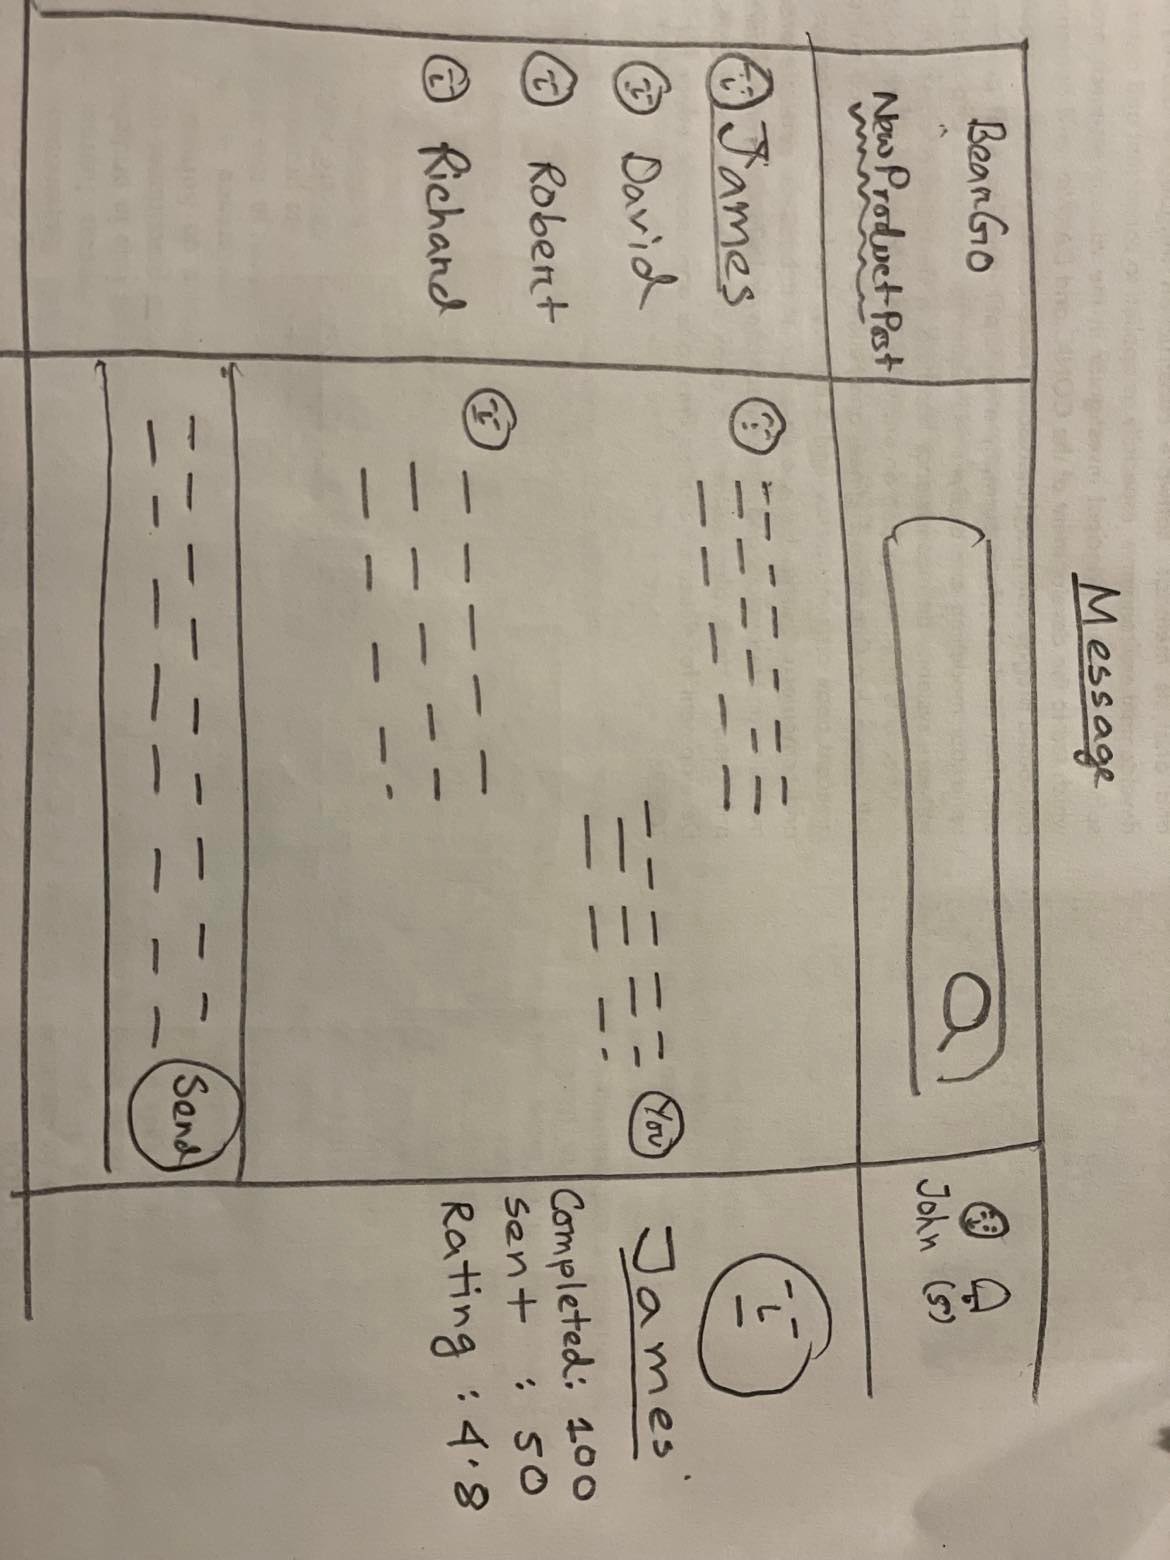 Message
BearGO
New Product Post
John (5)
James
David
Robert
Richard
You
James
Completed: 100
Sent : 50
Rating : 4.8
Send